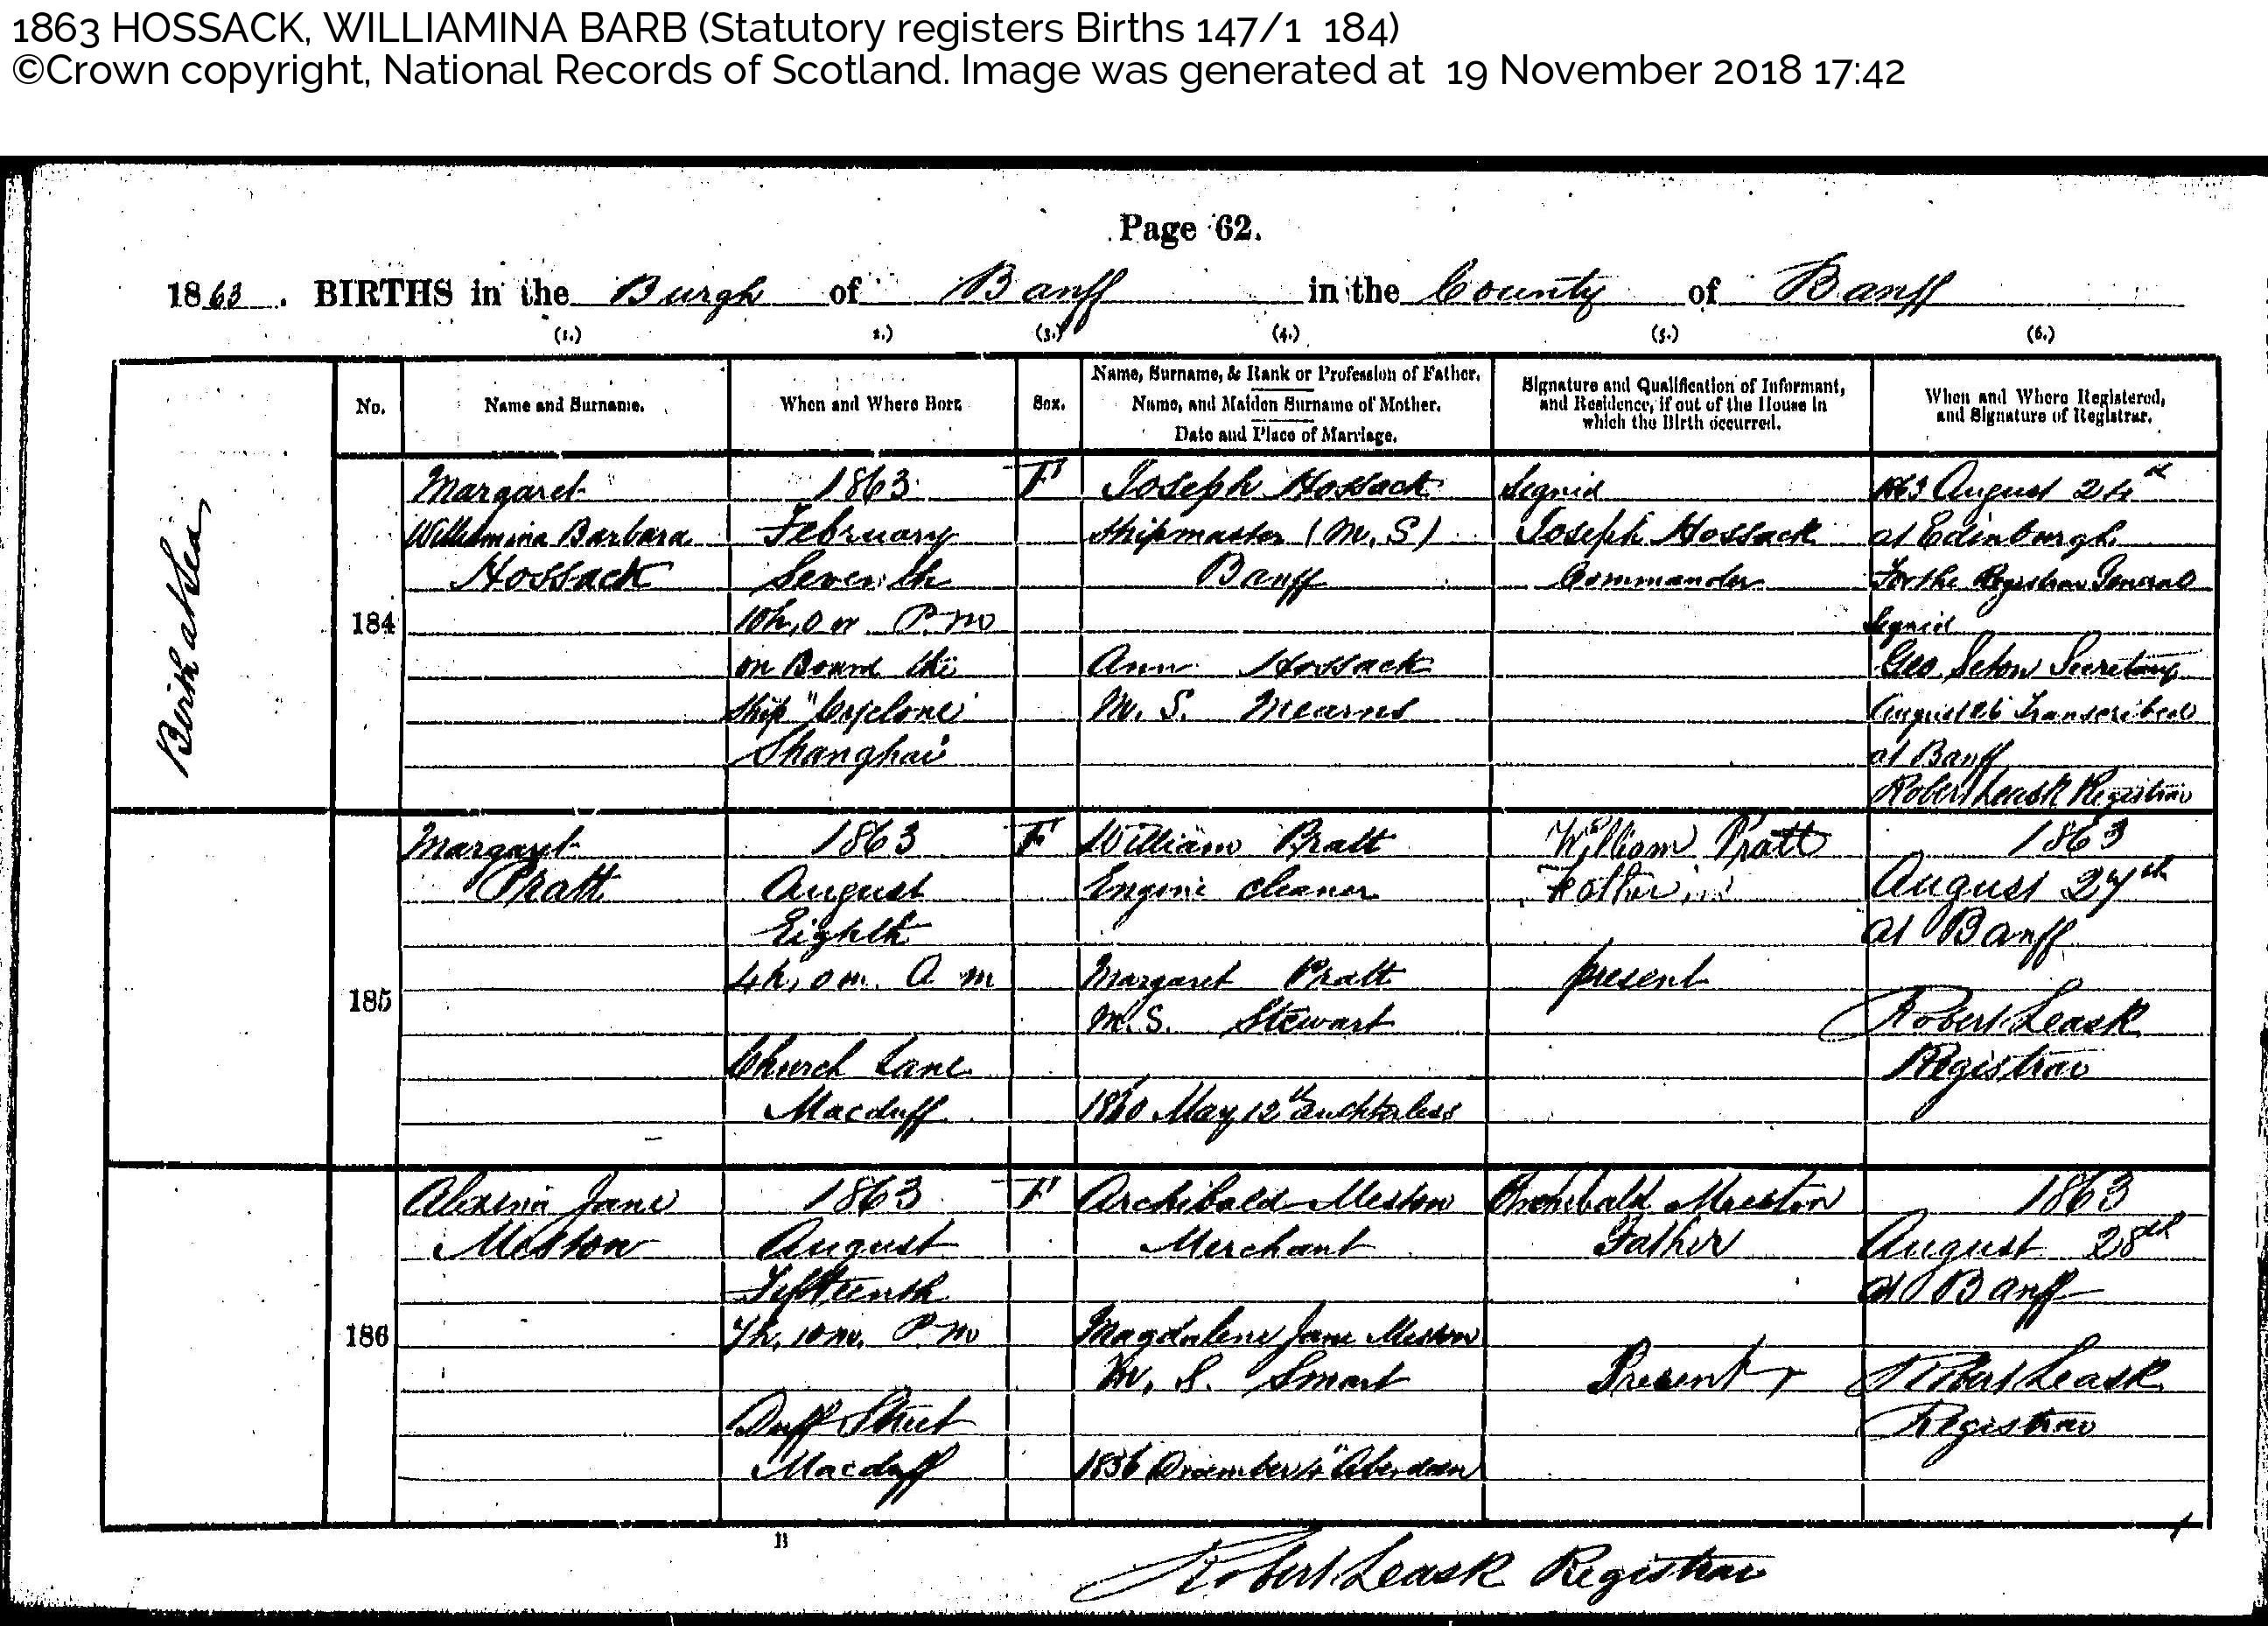 1863 HOSSACK, WILLIAMINA BARB (Statutory registers Births 147/1 184)
©Crown copyright, National Records of Scotland. Image was generated at 19 November 2018 17:42
Page 62.
1863. BIRTHS in the Burgh of Banff in the County of Banff
(1.) 2.) (3.) (4.) (5.) (6.)
No.
Name and Surname.
When and Where Born
Sex.
Name, Surname, & Rank or Profession of Father.
Name, and Maiden Surname of Mother.
Date and Place of Marriage.
Signature and Qualification of Informant,
and Residence, if out of the House in
which the Birth occurred.
When and Where Registered,
and Signature of Registrar.
Birth at Sea
184
Margaret
Williamina Barbara
Hossack
1863
February
Seventh
10h, 0 m P.M
on Board the
Ship "Cyclone"
Shanghai
F
Joseph Hossack
Shipmaster (M.S)
Banff
Ann Hossack
M.S. Mearns
Signed
Joseph Hossack
Commander
1863 August 24th
at Edinburgh
For the Registrar General
Signed
Geo. Seton Secretary
August 26 Transcribed
at Banff
Robert Leask Registrar
185
Margaret
Pratt
1863
August
Eighth
4h, 0 m. A M
Church Lane
Macduff
F
William Pratt
Engine Cleaner
Margaret Pratt
M.S. Stewart
1860 May 12th Auchterless
William Pratt
Father
present
1863
August 27th
at Banff
Robert Leask
Registrar
186
Alexina Jane
Meston
1863
August
Fifteenth
7h, 10 m. P M
Duff Street
Macduff
F
Archibald Meston
Merchant
Magdalene Jane Meston
M. S. Smart
1856 December Aberdeen
Archibald Meston
Father
Present
1863
August 28th
at Banff
Robert Leask
Registrar
B
Robert Leask Registrar